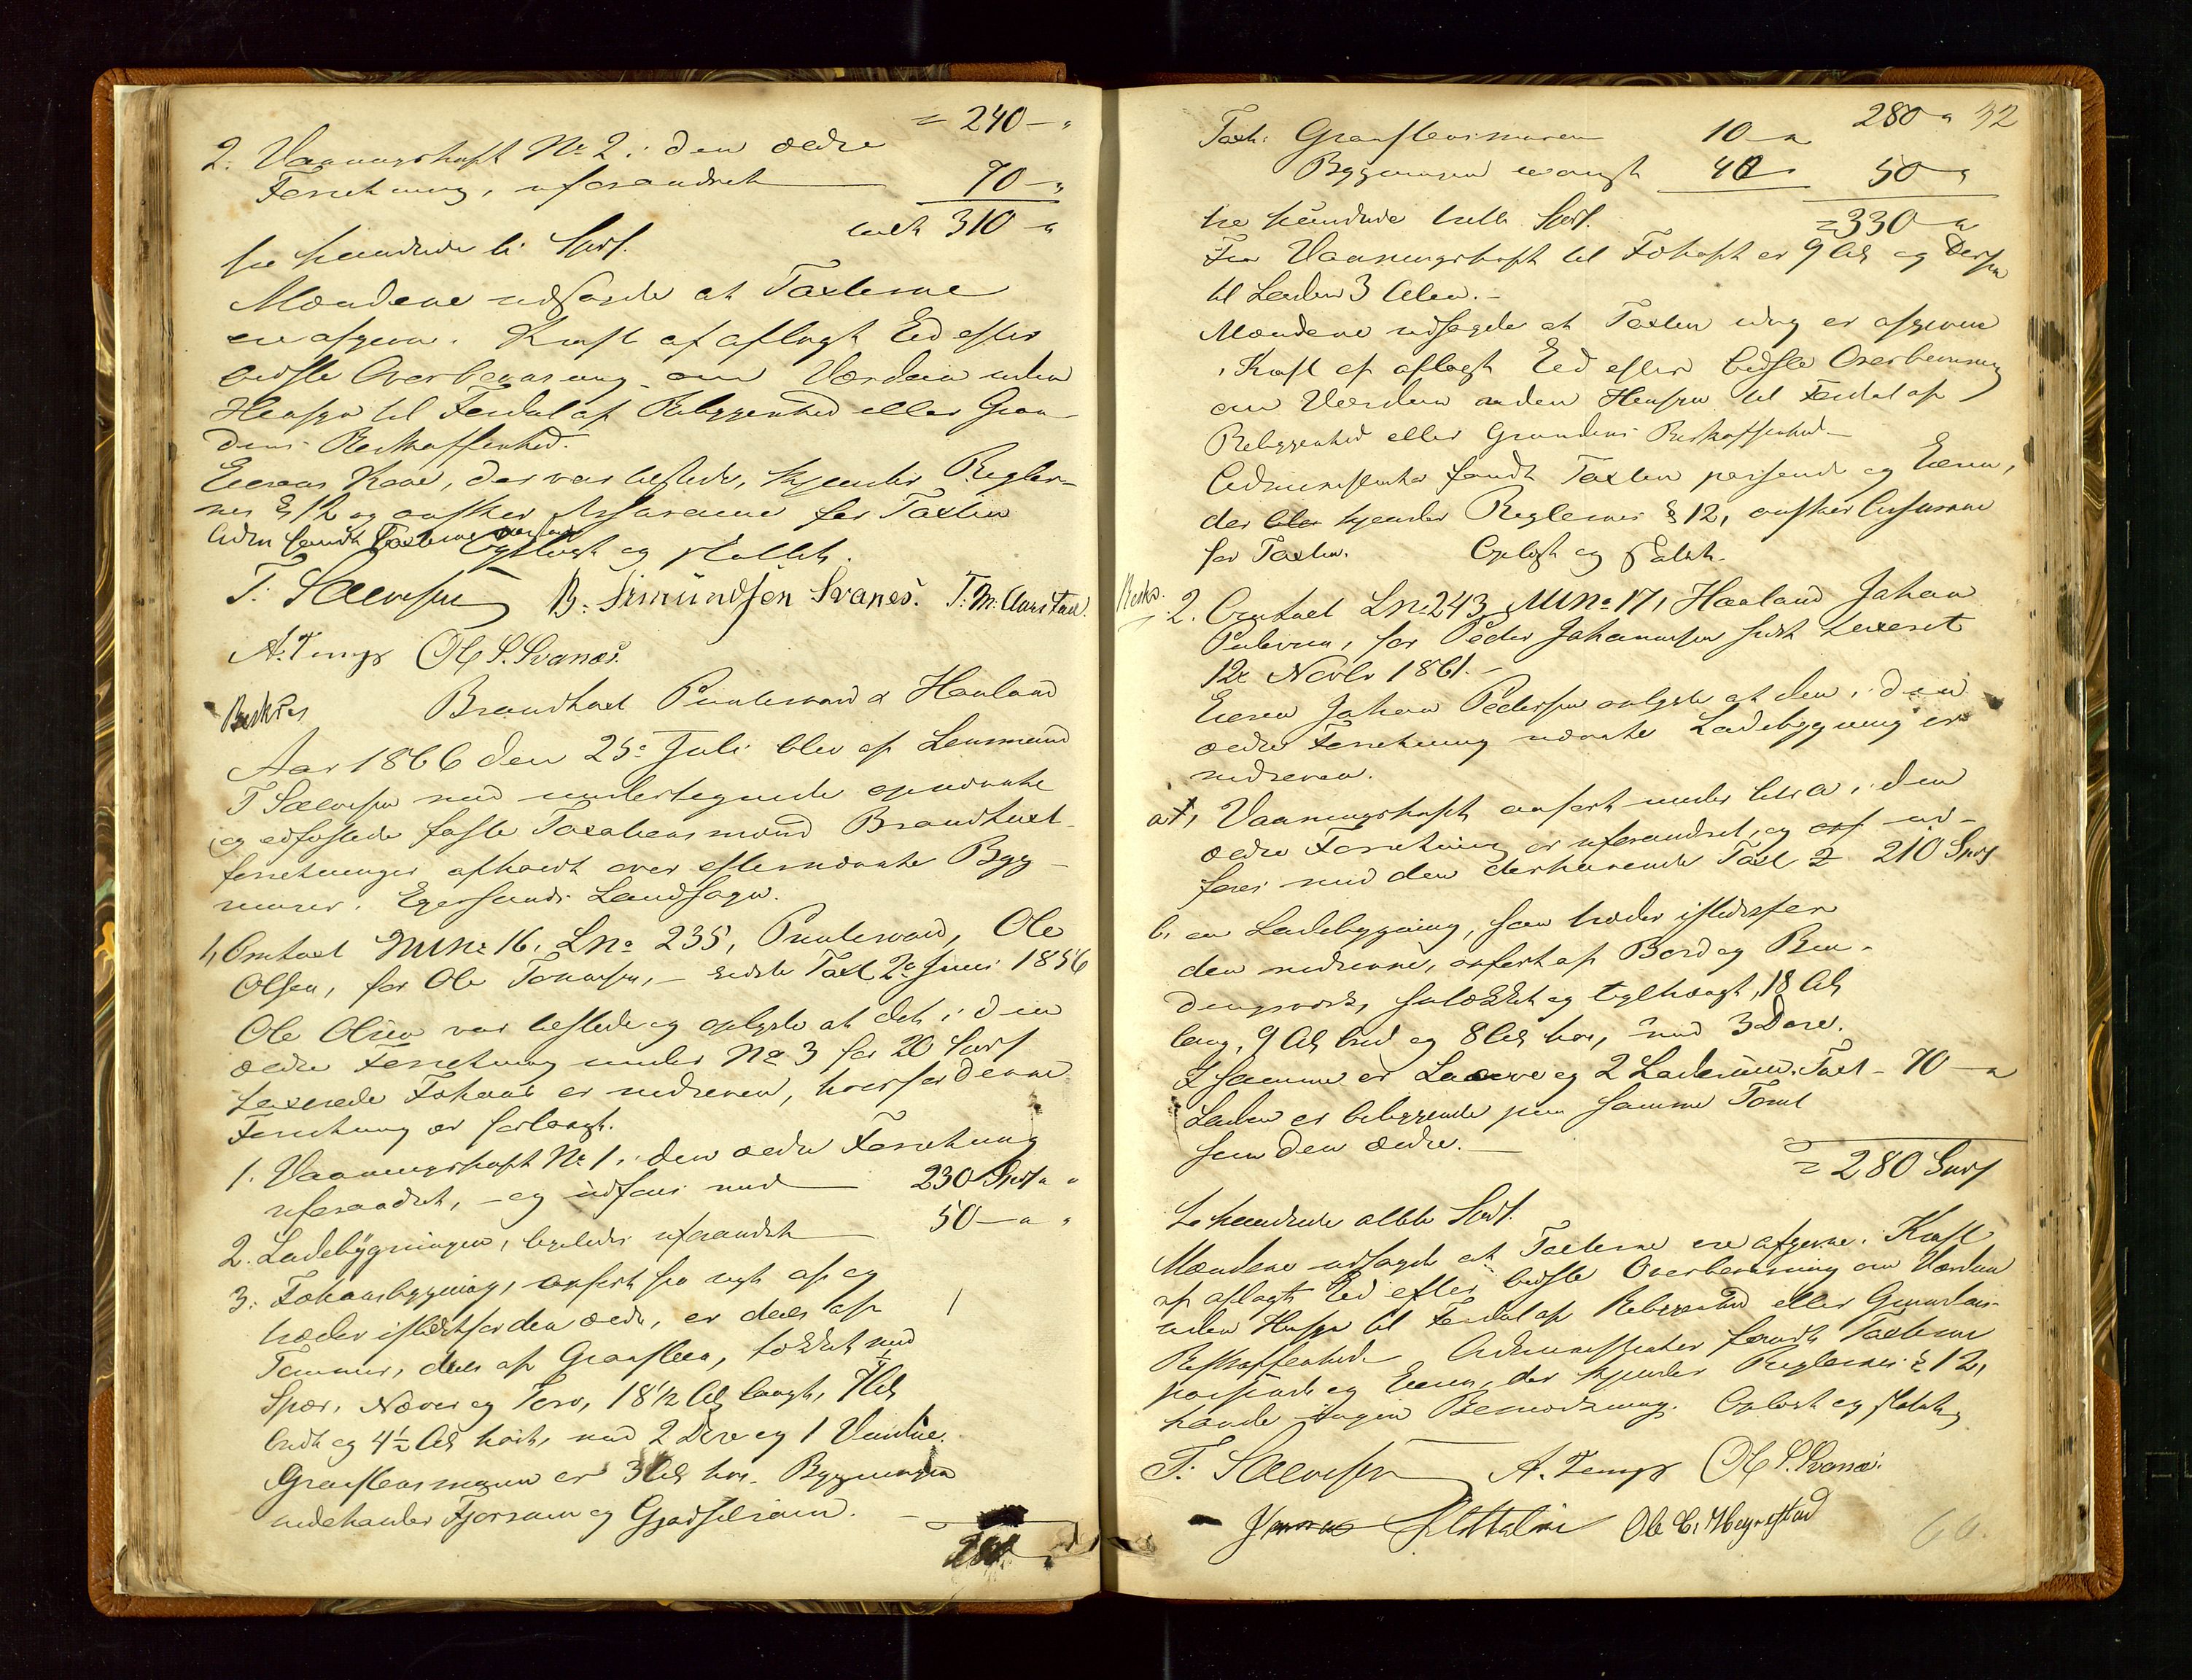 = 240 — "
2. Vaaningshuset No 2 i den ældre
Forretning, uforandret — 70 — "
talt 310 — "
tre hundrede ti Spds.
Mændene udsagde at Taxterne
ere afgivne i Kraft af aflagt Ed efter
bedste Overbevisning om Værdien uden
Hensyn til Fordel af Beliggenhed eller Grun-
dens Beskaffenhed.
Eierens Kone, der var tilstede, kjender Regler-
nes § 12 og ønsker Assurance for Taxten
Adm fandt Taxterne passende
Oplæst og sluttet.
T. Sælvesen B. Simundsen Svanes. T. M. Aarstad.
A. Tengs Ole S. Svanes.
Beskr. Brandtaxt Puntervold & Haaland
Aar 1866 den 25de Juli blev af Lensmand
T Sælvesen med undertegnede opnævnte
og edfæstede faste Taxationsmænd Brandtaxt-
forretninger afholdt over efternævnte Byg-
ninger i Egersunds Landsogn.
1, Omtaxt MNo 16, LNo 235, Puntervold, Ole
Olsen, for Ole Tønnesen, — sidste Taxt 2den Juni 1856
Ole Olsen var tilstede og oplyste at det i den
ældre Forretning under No 3 for 20 Spds
taxerede Fæhuus er nedreven, hvorfor denne
Forretning er forlangt.
1. Vaaningshuset No 1 i den ældre Forretning
uforandret, — og udføres med — 230 Spds " "
2. Ladebygningen, ligeledes uforandret — 50 — " "
3. Fæhuusbygning, opført fra nyt af og
træder istedetfor den ældre, er deels af
Tømmer, deels af Graasteen, tækket med
Spær, Næver og Torv, 18 1/2 Al langt, 7 1/2 Al
bredt og 4 1/2 Al høit, med 2 Døre og 1 Vindue.
Graasteensmuren er 3 Al høi. Bygningen
indeholder Fjøsrum og Gjødselrum. —
280
280 " 32
Taxt: Graasteensmuren 10 — "
Bygningen iøvrigt 40 50 — "
tre hundrede tretti Spds. = 330 — "
Fra Vaaningshuset til Fæhuset er 9 Al og Derfra
til Laden 3 Alen. —
Mændene udsagde at Taxten idag er afgiven
i Kraft af aflagt Ed efter bedste Overbevisning
om Værdien uden Hensyn til Fordel af
Beliggenhed eller Grundens Beskaffenhed —
Administrator fandt Taxten passende og Eieren,
der kjender Reglernes § 12, ønsker Assurance
for Taxten. Oplæst og Sluttet.
Beskr.
2. Omtaxt LNo 243, MNo 17, Haaland Johan
Pedersen, for Peder Johannesen sidst taxeret
12te Novbr 1861. —
Eieren Johan Pedersen oplyste at den i den
ældre Forretning nævnte Ladebygning er
nedreven.
a, Vaaningshuset opført under litr a i den
ældre Forretning er uforandret, og ud-
føres med den derhavende Taxt 210 Spds
b, en Ladebygning, som træder istedetfor
den nedrevne, opført af Bord og Bin-
dingsværk, sutækket og teglhængt, 18 Al
lang, 9 Al bred og 8 Al høi, med 3 Døre.
I samme er Laave og 2 Laderum. Taxt — 70 — "
Laden er beliggende paa samme Tomt
som den ældre. —
= 280 Spds
to hundrede otteti Spds.
Mændene udsagde at Taxterne ere afgivne i Kraft
af aflagt Ed efter bedste Overbevisning om Værdien
uden Hensyn til Fordel af Beliggenhed eller Grundens
Beskaffenhed. Administrator fandt Taxterne
passende og Eieren, der kjender Reglernes § 12,
havde ingen Bemærkning. Oplæst og sluttet
T. Sælvesen A. Tengs Ole S. Svanes.
Ole C. Hegrestad
60.